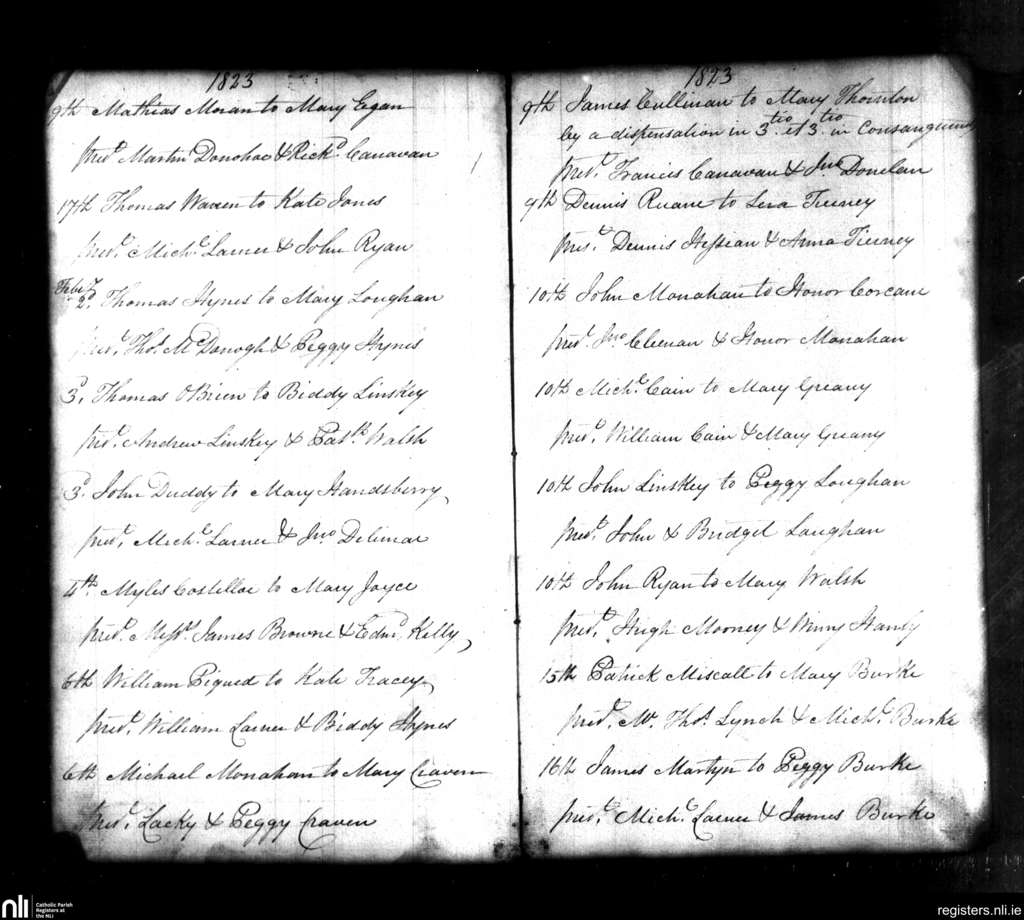 1823
9th Mathias Moran to Mary Egan
presᵗ Martin Donohoe & Richᵈ Canavan
17th Thomas Waren to Kate Jones
presᵗ Michˡ Larner & John Ryan
Febʸ 2ᵈ Thomas Hynes to Mary Loughan
presᵗ Thoˢ McDonogh & Peggy Hynes
3ᵈ Thomas OBrien to Biddy Linskey
presᵗ Andrew Linskey & Patᵏ Walsh
3ᵈ John Duddy to Mary Handsberry
presᵗ Michˡ Larner & Jnᵒ Delimar
4th Myles Costelloe to Mary Joyce
presᵗ Messʳˢ James Browne & Edmᵈ Kelly
6th William Pigued to Kate Tracey
presᵗ William Larner & Biddy Hynes
6th Michael Monahan to Mary Craven
presᵗ Lacky & Peggy Craven
1823
9th James Cullinan to Mary Thornton
by a dispensation in 3ᵗⁱᵒ et 3ᵗⁱᵒ in Consanguinity
presᵗ Francis Canavan & Jnᵒ Donelan
9th Dennis Ruane to Sera Tierney
presᵗ Dennis Hessian & Anna Tierney
10th John Monahan to Honor Corcane
presᵗ Jnᵒ Cleenan & Honor Monahan
10th Michˡ Cain to Mary Greany
presᵗ William Cain & Mary Greany
10th John Linskey to Peggy Loughan
presᵗ John & Bridget Laughan
10th John Ryan to Mary Walsh
presᵗ Hugh Mooney & Winny Hansy
15th Patrick Miscall to Mary Burke
presᵗ Mr Thoˢ Lynch & Michˡ Burke
16th James Martyn to Peggy Burke
presᵗ Michˡ Larner & James Burke
nli
Catholic Parish
Registers at
the NLI
registers.nli.ie